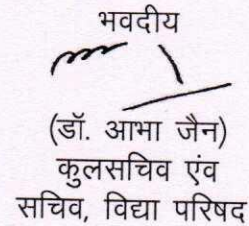 भवदीय
(डॉ. आभा जैन)
कुलसचिव एंव
सचिव, विद्या परिषद